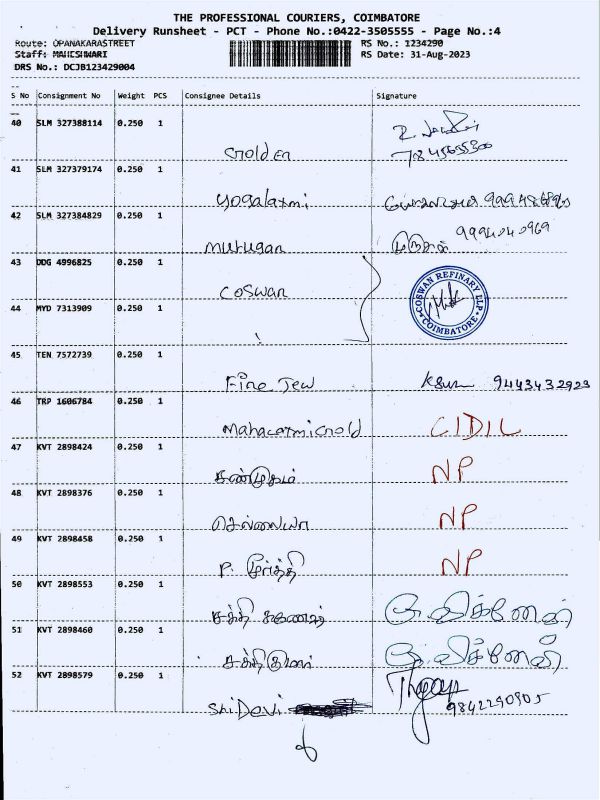 THE PROFESSIONAL COURIERS, COIMBATORE
Delivery Runsheet - PCT - Phone No.:0422-3505555 - Page No.:4
Route: OPANAKARASTREET RS No.: 1234290
Staff: MAHESHWARI RS Date: 31-Aug-2023
DRS No.: DCJB123429004
S No Consignment No Weight PCS Consignee Details Signature
40 SLM 327388114 0.250 1
Golden
41 SLM 327379174 0.250 1
yogalaxmi
42 SLM 327384829 0.250 1 9994040969
murugan முருகன்
43 DDG 4996825 0.250 1
coswan COSWAN REFINARY LLP COIMBATORE
44 MYD 7313909 0.250 1
45 TEN 7572739 0.250 1
Fine Jew 9443432923
46 TRP 1606784 0.250 1
Mahalaxmi Gold CIDIL
47 KVT 2898424 0.250 1
சண்முகம் NP
48 KVT 2898376 0.250 1
செல்லையா NP
49 KVT 2898458 0.250 1
P. மூர்த்தி NP
50 KVT 2898553 0.250 1
சக்தி கணேஷ்
51 KVT 2898460 0.250 1
சக்திகுமார்
52 KVT 2898579 0.250 1
Shi Davi 9842290905